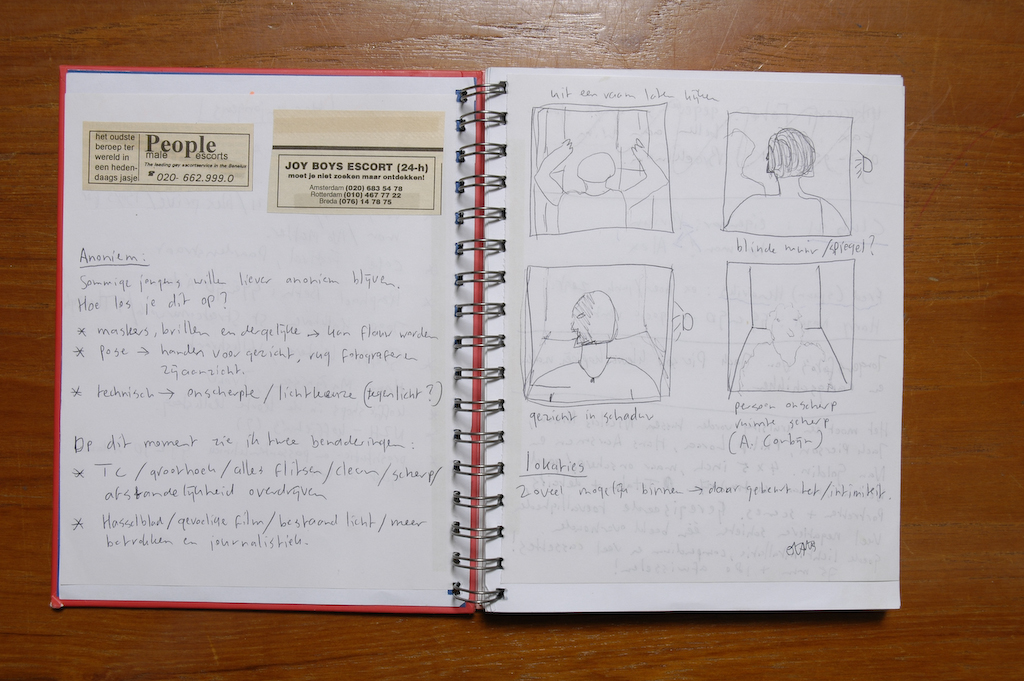 het oudste
beroep ter
wereld in
een heden-
daags jasje
People
male escorts
The leading gay escortservice in the Benelux
☎ 020- 662.999.0
JOY BOYS ESCORT (24-h)
moet je niet zoeken maar ontdekken!
Amsterdam (020) 683 54 78
Rotterdam (010) 467 77 22
Breda (076) 14 78 75
Anoniem:
Sommige jongens willen liever anoniem blijven.
Hoe los je dit op?
* maskers, brillen en dergelijke → kan flauw worden
* pose → handen voor gezicht, rug fotograferen
zijaanzicht.
* technisch → onscherpte/lichtkeuze (tegenlicht?)
Op dit moment zie ik twee benaderingen:
* TC/groothoek/alles flitsen/clean/scherp/
afstandelijkheid overdrijven
* Hasselblad/gevoelige film/bestaand licht/meer
betrokken en journalistiek.
uit een raam laten kijken
blinde muur/spiegel?
gezicht in schaduw
persoon onscherp
ruimte scherp
(A. Corbijn)
lokaties
Zoveel mogelijk binnen → daar gebeurt het/intimiteit.